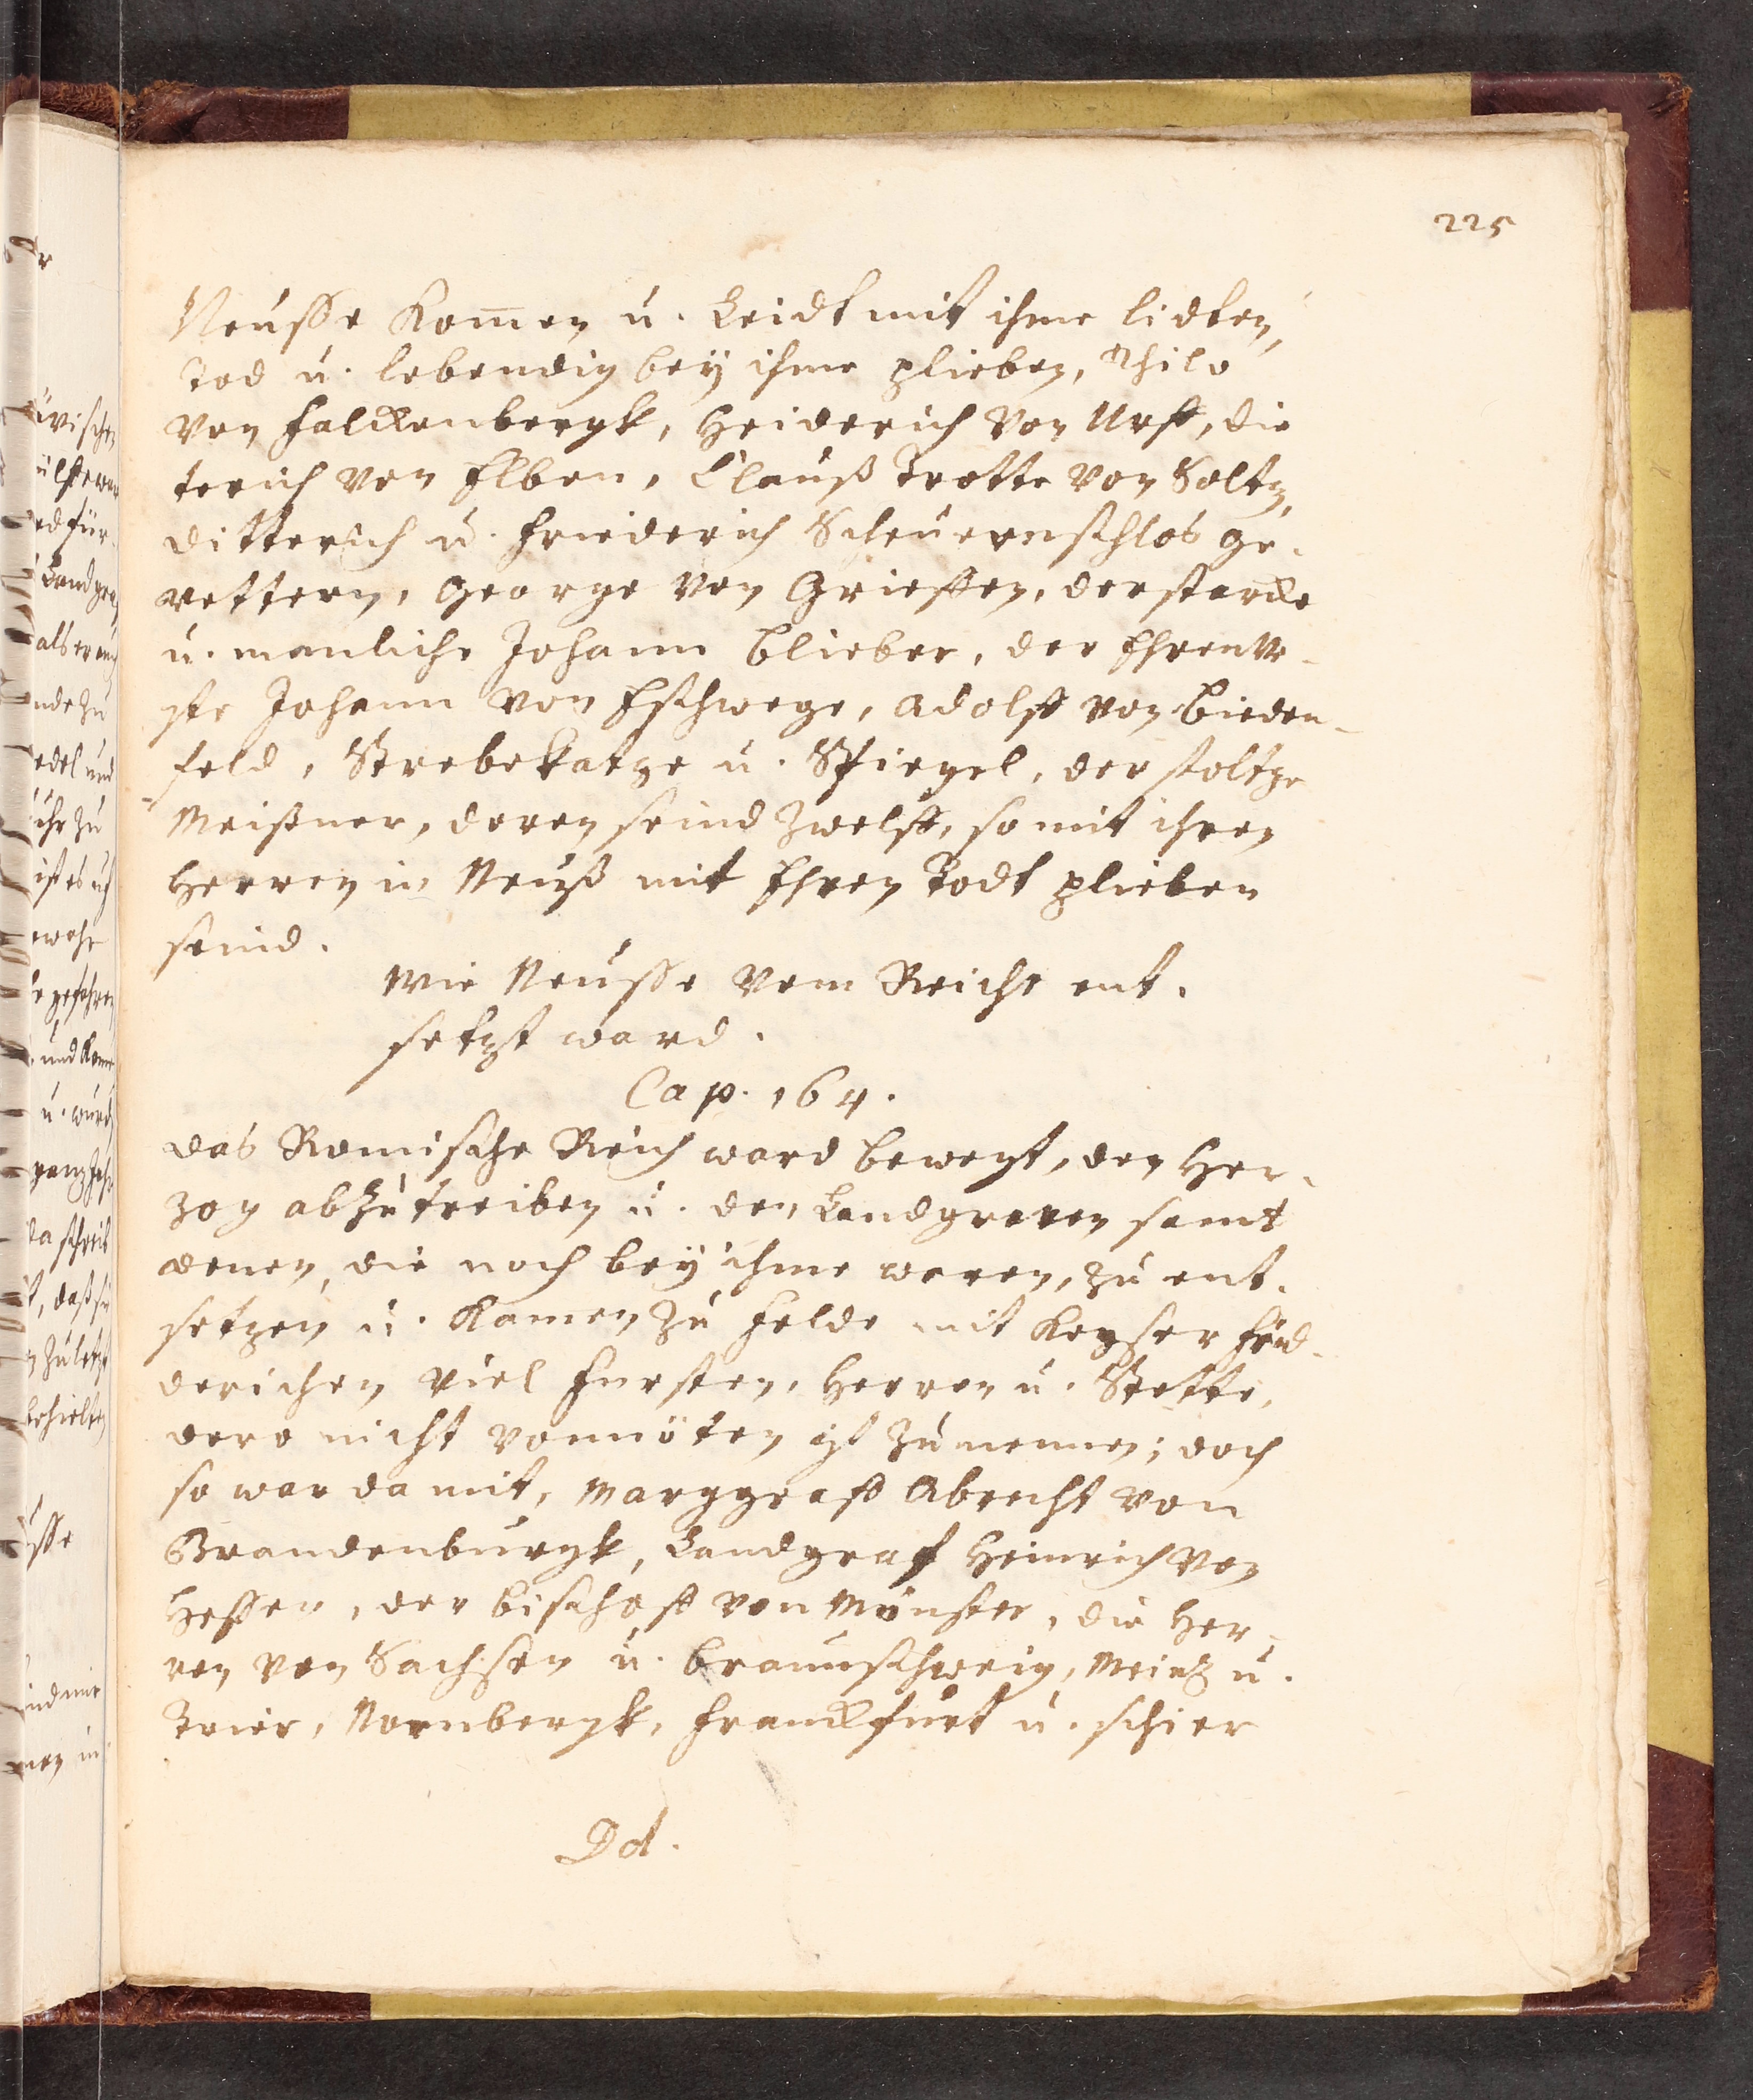 225
Neusse kom̅en u. Leidt mit ihme lidten,
Tod u. lebendig bey ihme plieben, Thilo
von Falckenbergk, Heiderich von Urff, Die
terich von Elben, Clauß Trotte von Soltz,
Ditterich u. Friederich Scheuernschlos ge-
vettern, George von Grieffen, der starcke
u. manliche Johann Blieber, der Ehrenve-
ste Johann von Eschwege, Adolff von Bieden-
feld, Strebekatze u. Spiegel, der stoltze
Meißner, deren seind zwelff, so mit ihren
Herren in Neuß mit Ehren Todt plieben
seind.
Wie Neusse vom Reiche ent-
setzt ward.
Cap. 164.
Das Romische Reich ward bewegt, den Her-
zog abzutreiben u. den Landgraven samt
denen, die noch bey ihme waren, zu ent-
setzen u. kamen zu Felde mit Keyser Frid-
derichen viel Fursten, Herren u. Stette,
dero nicht vonnöten ist zu nennen; doch
so war da mit, Marggraff Abrecht von
Brandenburgk, Landgraf Heinrich von
Hessen, der Bischoff von Münster, die Her-
ren von Sachsen u. Braunschweig, Meintz u.
Trier, Nornbergk, Franckfurt u. schier
Dd.